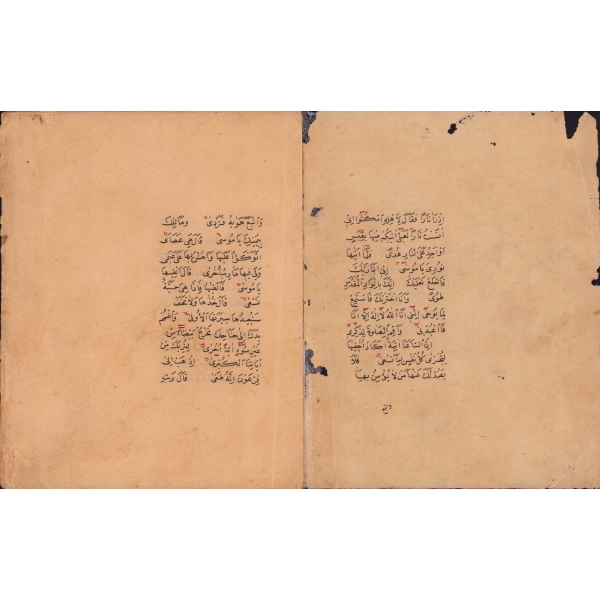 اِذْ رَاٰ نَارًا فَقَالَ لِاَهْلِهِ امْكُثُٓوا اِنّٖٓي
اٰنَسْتُ نَارًا لَعَلّٖٓي اٰتٖيكُمْ مِنْهَا بِقَبَسٍ
اَوْ اَجِدُ عَلَى النَّارِ هُدًى فَلَمَّٓا اَتٰيهَا
نُودِيَ يَا مُوسٰى اِنّٖٓي اَنَا۬ رَبُّكَ
فَاخْلَعْ نَعْلَيْكَ اِنَّكَ بِالْوَادِ الْمُقَدَّسِ
طُوًى وَاَنَا اخْتَرْتُكَ فَاسْتَمِعْ
لِمَا يُوحٰى اِنَّنٖٓي اَنَا اللّٰهُ لَٓا اِلٰهَ اِلَّٓا اَنَا۬
فَاعْبُدْنٖي وَاَقِمِ الصَّلٰوةَ لِذِكْرٖي
اِنَّ السَّاعَةَ اٰتِيَةٌ اَكَادُ اُخْفٖيهَا
لِتُجْزٰى كُلُّ نَفْسٍ بِمَا تَسْعٰى فَلَا
يَصُدَّنَّكَ عَنْهَا مَنْ لَا يُؤْمِنُ بِهَا
وَاتَّبَعَ هَوٰيهُ فَتَرْدٰى وَمَا تِلْكَ
بِيَمٖينِكَ يَا مُوسٰى قَالَ هِيَ عَصَايَ
اَتَوَكَّؤُ۬ا عَلَيْهَا وَاَهُشُّ بِهَا عَلٰى غَنَمٖي
وَلِيَ فٖيهَا مَاٰرِبُ اُخْرٰى قَالَ اَلْقِهَا
يَا مُوسٰى فَاَلْقٰيهَا فَاِذَا هِيَ حَيَّةٌ
تَسْعٰى قَالَ خُذْهَا وَلَا تَخَفْ
سَنُعٖيدُهَا سٖيرَتَهَا الْاُو۫لٰى وَاضْمُمْ
يَدَكَ اِلٰى جَنَاحِكَ تَخْرُجْ بَيْضَٓاءَ مِنْ
غَيْرِ سُٓوءٍ اٰيَةً اُخْرٰى لِنُرِيَكَ مِنْ
اٰيَاتِنَا الْكُبْرٰى اِذْهَبْ اِلٰى
فِرْعَوْنَ اِنَّهُ طَغٰى قَالَ رَبِّ